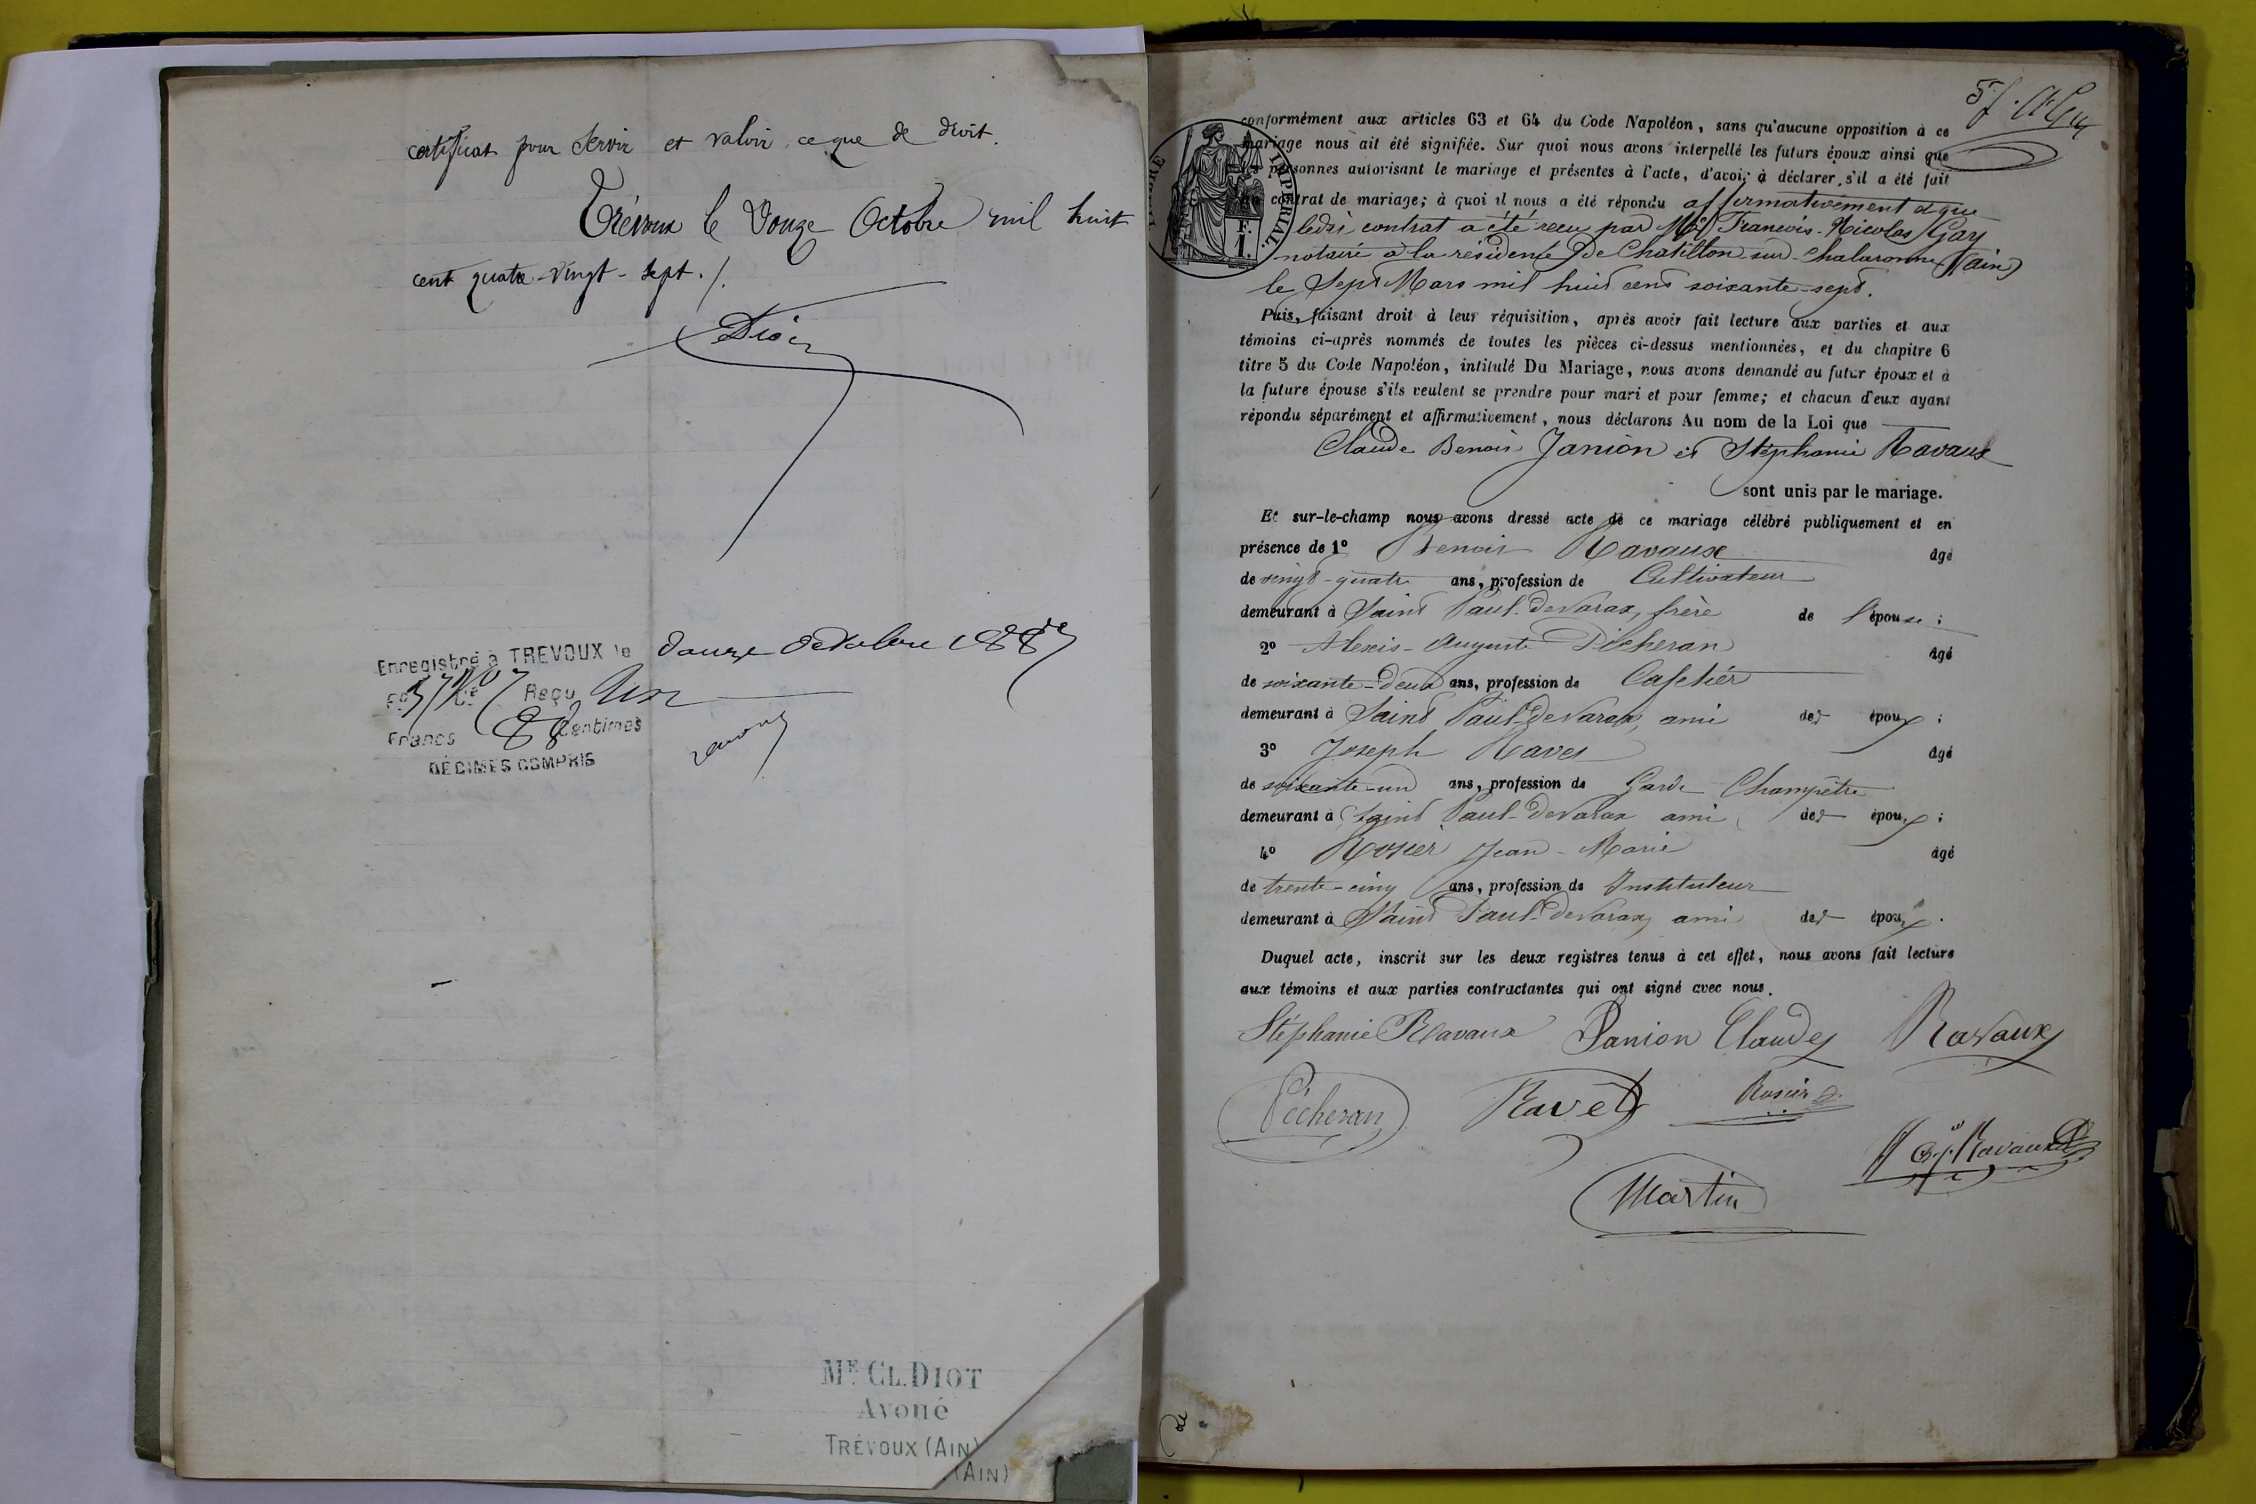 certificat pour servir et valoir ce que de droit.
Trévoux le Douze Octobre mil huit
cent quatre-vingt-sept./.
Diot
Enregistré à TREVOUX le douze octobre 188
Reçu un
Francs 88 Centimes
DÉCIMES COMPRIS
ME CL. DIOT
Avoué
TRÉVOUX (AIN)
(AIN)
conformément aux articles 63 et 64 du Code Napoléon, sans qu'aucune opposition à ce
mariage nous ait été signifiée. Sur quoi nous avons interpellé les futurs époux ainsi que
personnes autorisant le mariage et présentes à l'acte, d'avoir à déclarer s'il a été fait
contrat de mariage; à quoi il nous a été répondu affirmativement et que
ledit contrat a été reçu par Me François-Nicolas Gay
notaire à la résidence de Chatillon-sur-Chalaronne (ain)
le Sept Mars mil huit cent soixante-sept.
TIMBRE IMPERIAL.
F.
1.
Puis, faisant droit à leur réquisition, après avoir fait lecture aux parties et aux
témoins ci-après nommés de toutes les pièces ci-dessus mentionnées, et du chapitre 6
titre 5 du Code Napoléon, intitulé Du Mariage, nous avons demandé au futur époux et à
la future épouse s'ils veulent se prendre pour mari et pour femme; et chacun d'eux ayant
répondu séparément et affirmativement, nous déclarons Au nom de la Loi que
Claude Benoit Janion et Stéphanie Ravaux
sont unis par le mariage.
Et sur-le-champ nous avons dressé acte de ce mariage célébré publiquement et en
présence de 1º Benoit Ravaux âgé
de vingt-quatre ans, profession de Cultivateur
demeurant à Saint Paul-de Varax, frère de l'épouse;
2º Alexis-Auguste Pécheran âgé
de soixante-deux ans, profession de Cafetier
demeurant à Saint Paul-de Varax, ami des époux;
3º Joseph Ravet âgé
de soixante-un ans, profession de Garde-Champêtre
demeurant à Saint Paul-de Varax ami des époux;
4º Rosier Jean-Marie âgé
de trente-cinq ans, profession de Instituteur
demeurant à Saint Paul-de Varax, ami des époux.
Duquel acte, inscrit sur les deux registres tenus à cet effet, nous avons fait lecture
aux témoins et aux parties contractantes qui ont signé avec nous.
Stéphanie Ravaux Janion Claude Ravaux
Pécheran Ravet Rosier
Ravaux
Martin